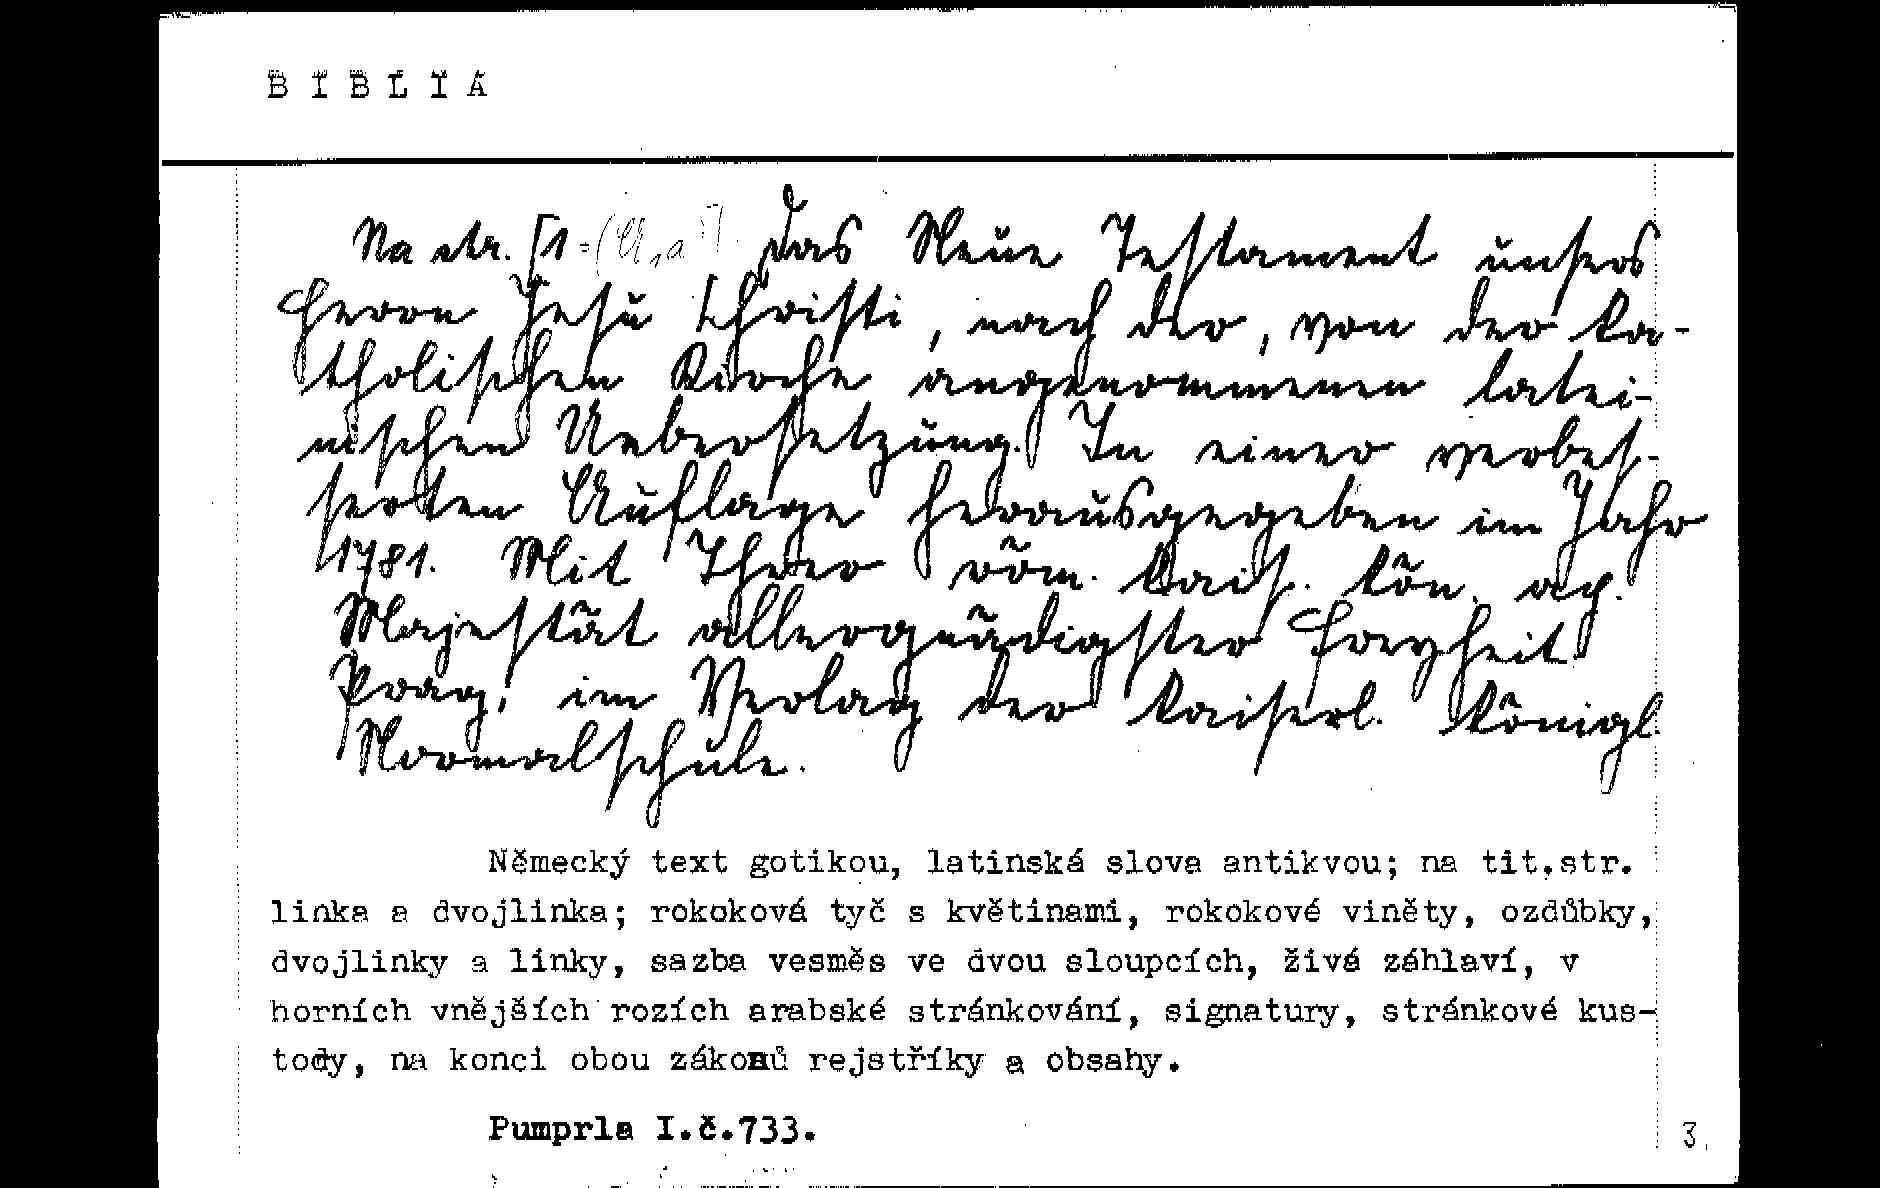 B I B L I A
Na str. [1 = (A₁a)] Das Neue Testament unsers
Herrn Jesu Christi, nach der, von der ka-
tholischen Kirche angenommenen latei-
nischen Uebersetzung. In einer verbes-
serten Auflage herausgegeben im Jahr
1781. Mit Ihrer röm. kais. kön. ap.
Majestät allergnädigster Freyheit
Prag, im Verlag der kaiserl. königl.
Normalschule.
Německý text gotikou, latinská slova antikvou; na tit.str.
linka a dvojlinka; rokoková tyč s květinami, rokokové viněty, ozdůbky,
dvojlinky a linky, sazba vesměs ve dvou sloupcích, živá záhlaví, v
horních vnějších rozích arabské stránkování, signatury, stránkové kus-
tody, na konci obou zákonů rejstříky a obsahy.
Pumprla I.č.733.
3.